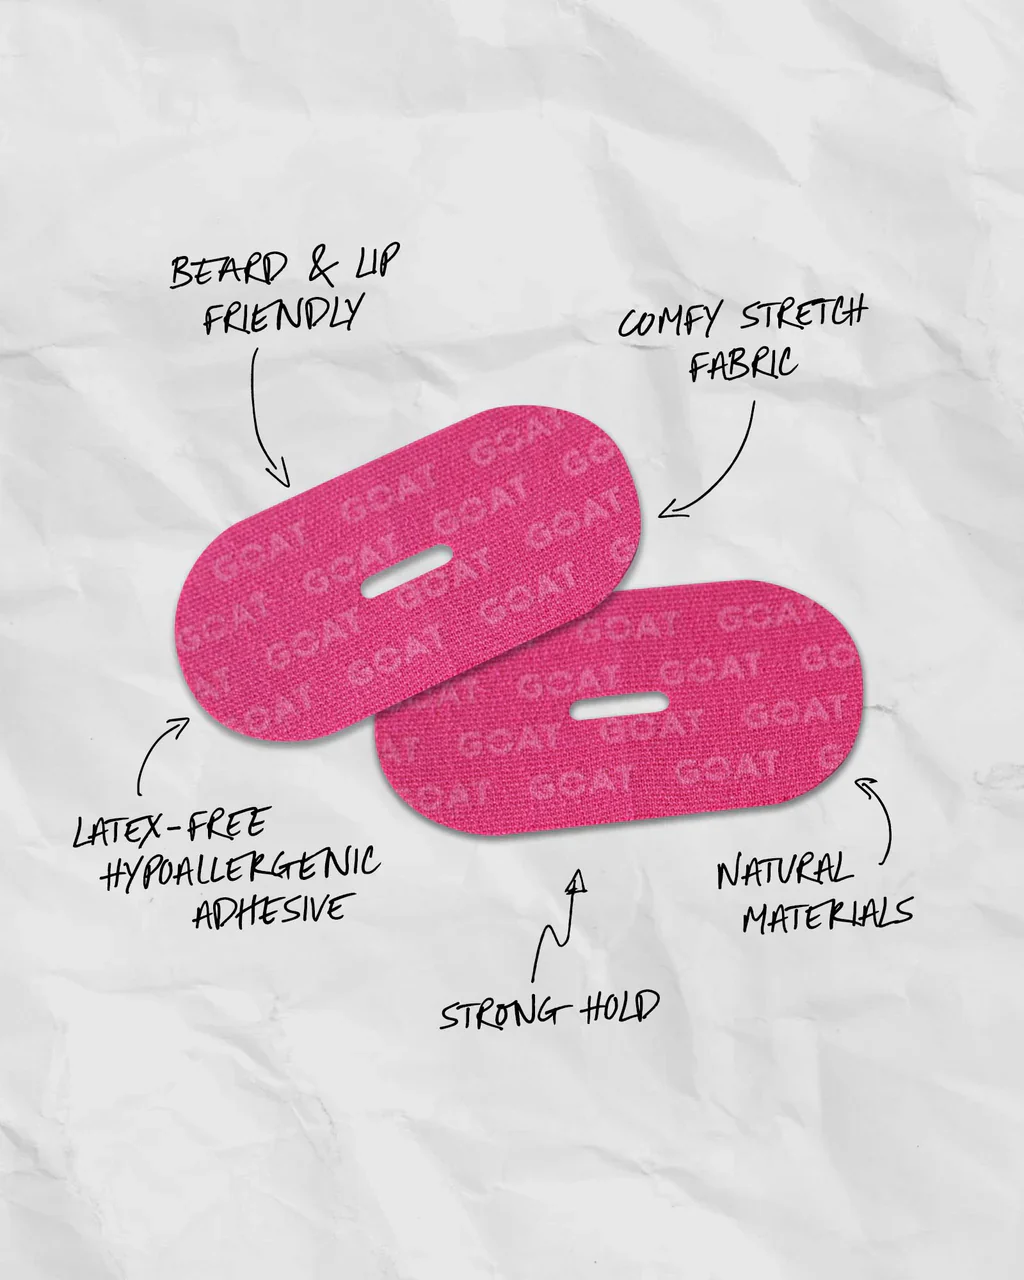 BEARD & LIP
FRIENDLY
COMFY STRETCH
FABRIC
GOAT GO
GOAT GOAT GO
GOAT GOAT GOAT GOAT
GOAT GOAT GOAT G
AT GOAT GOAT
GOAT
GOAT GOAT
GOAT GOAT GO
AT GOAT GOAT GOAT
GOAT GOAT GOAT G
LATEX-FREE
HYPOALLERGENIC
ADHESIVE
NATURAL
MATERIALS
STRONG HOLD